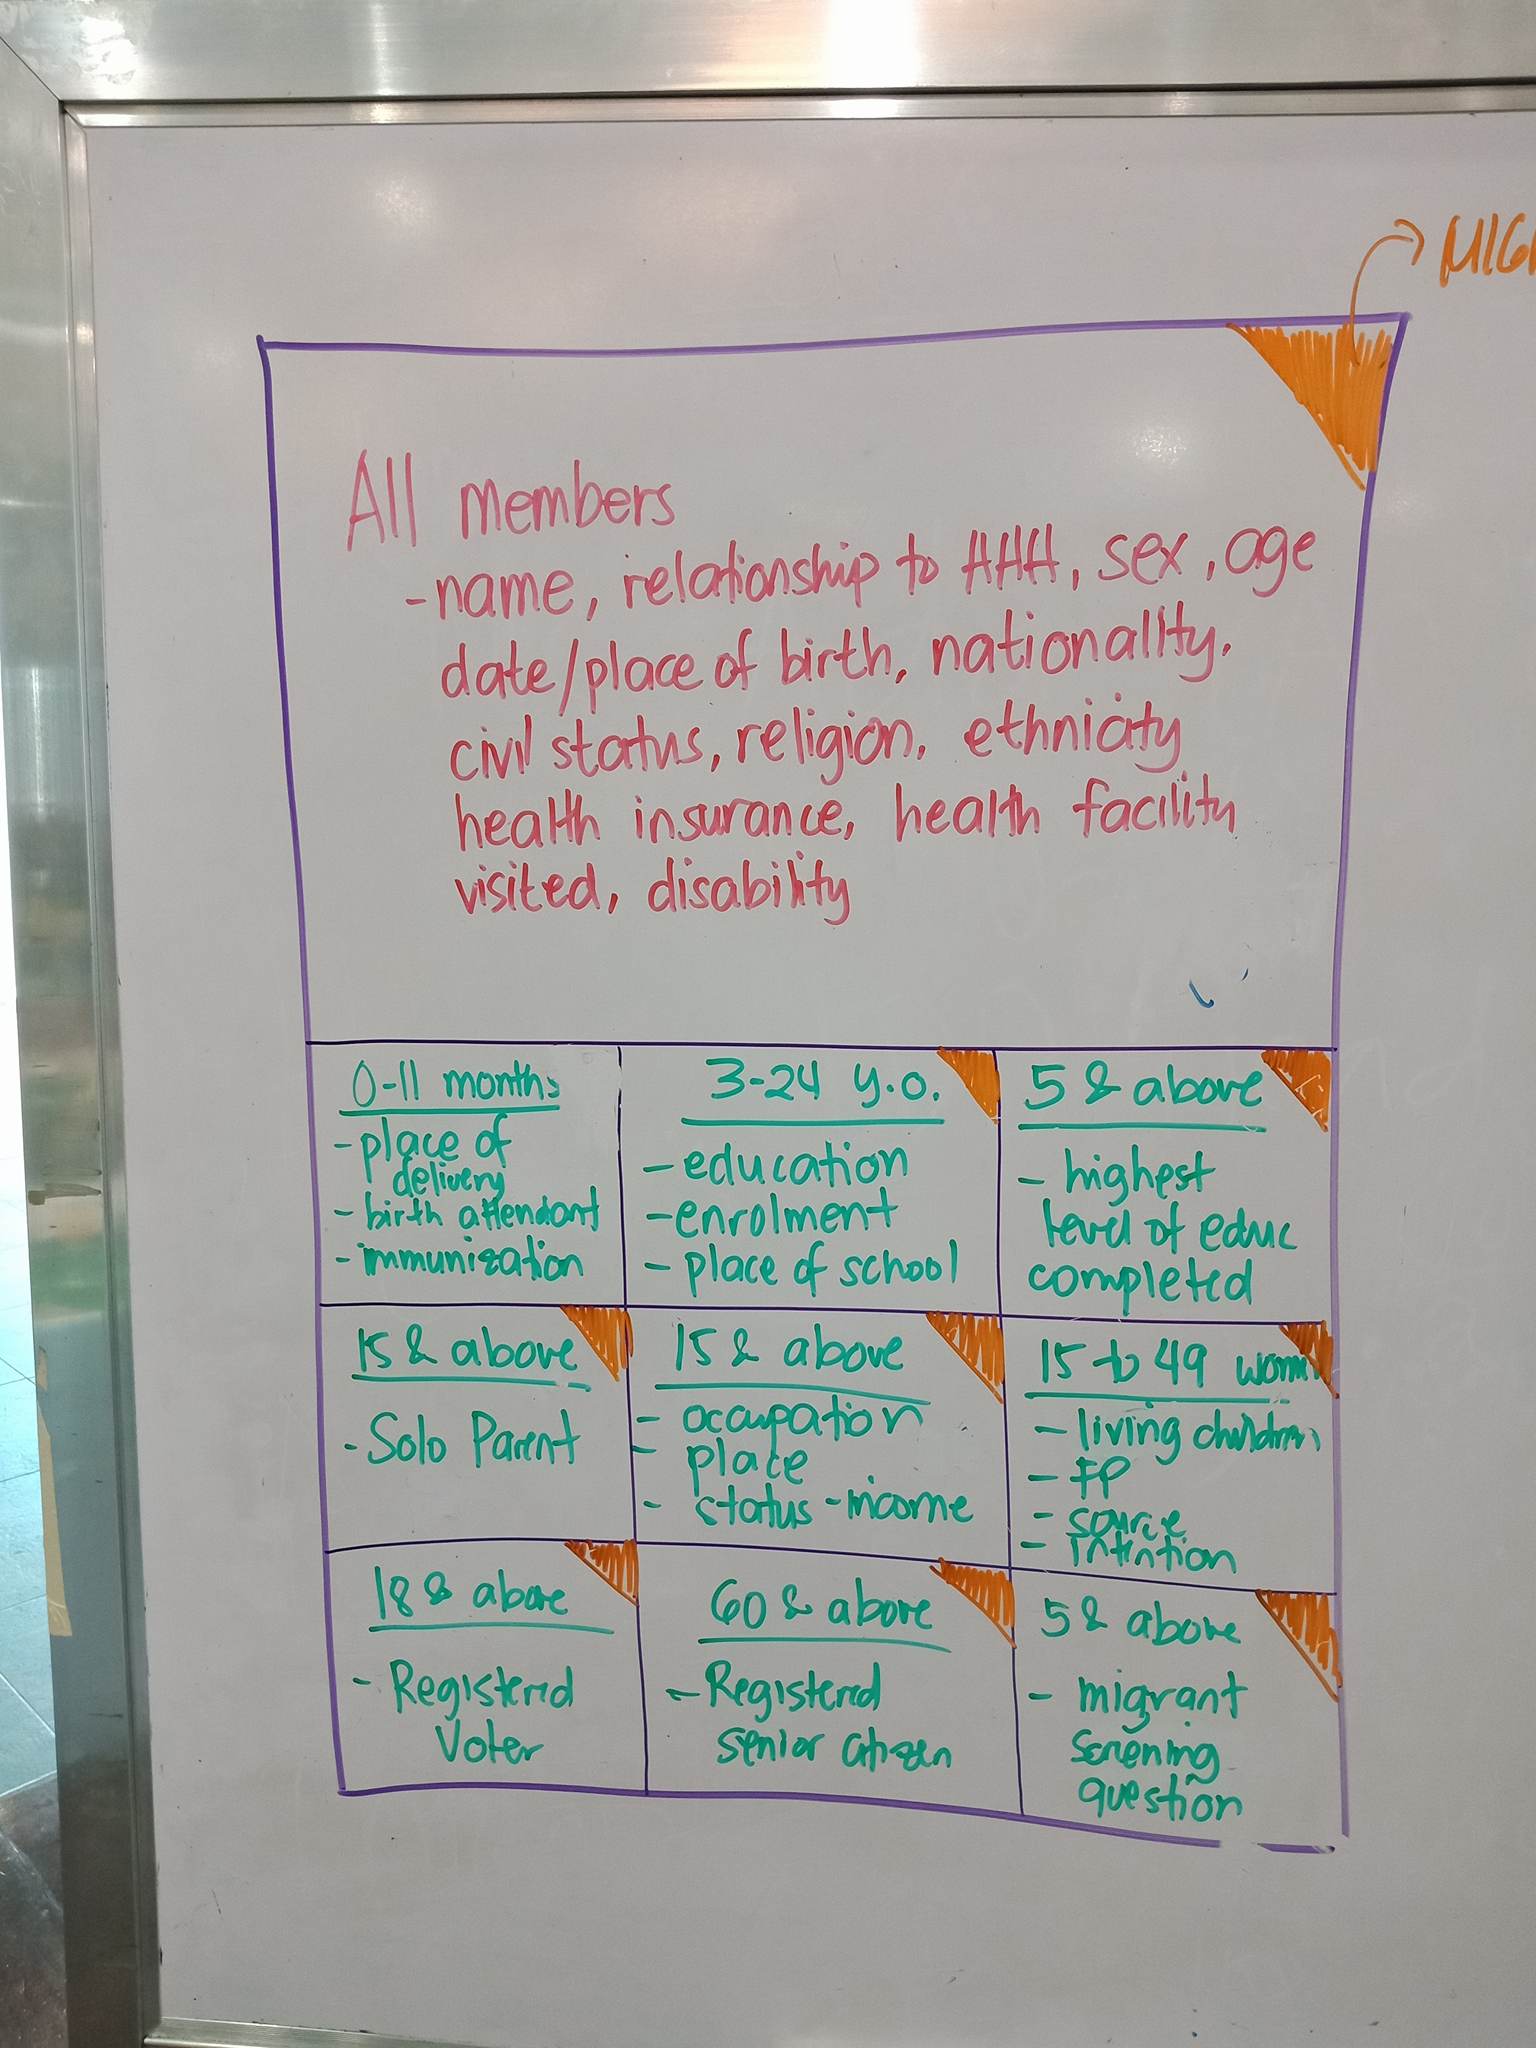 All members
- name, relationship to HHH, sex, age
date/place of birth, nationality,
civil status, religion, ethnicity
health insurance, health facility
visited, disability
0-11 months
- place of
delivery
- birth attendant
- immunization
3-24 y.o.
- education
- enrolment
- place of school
5 & above
- highest
level of educ
completed
15 & above
- Solo Parent
15 & above
- occupation
- place
- status - income
15 to 49 women
- living children
- FP
- source
- intention
18 & above
- Registered
Voter
60 & above
- Registered
senior citizen
5 & above
- migrant
screening
question